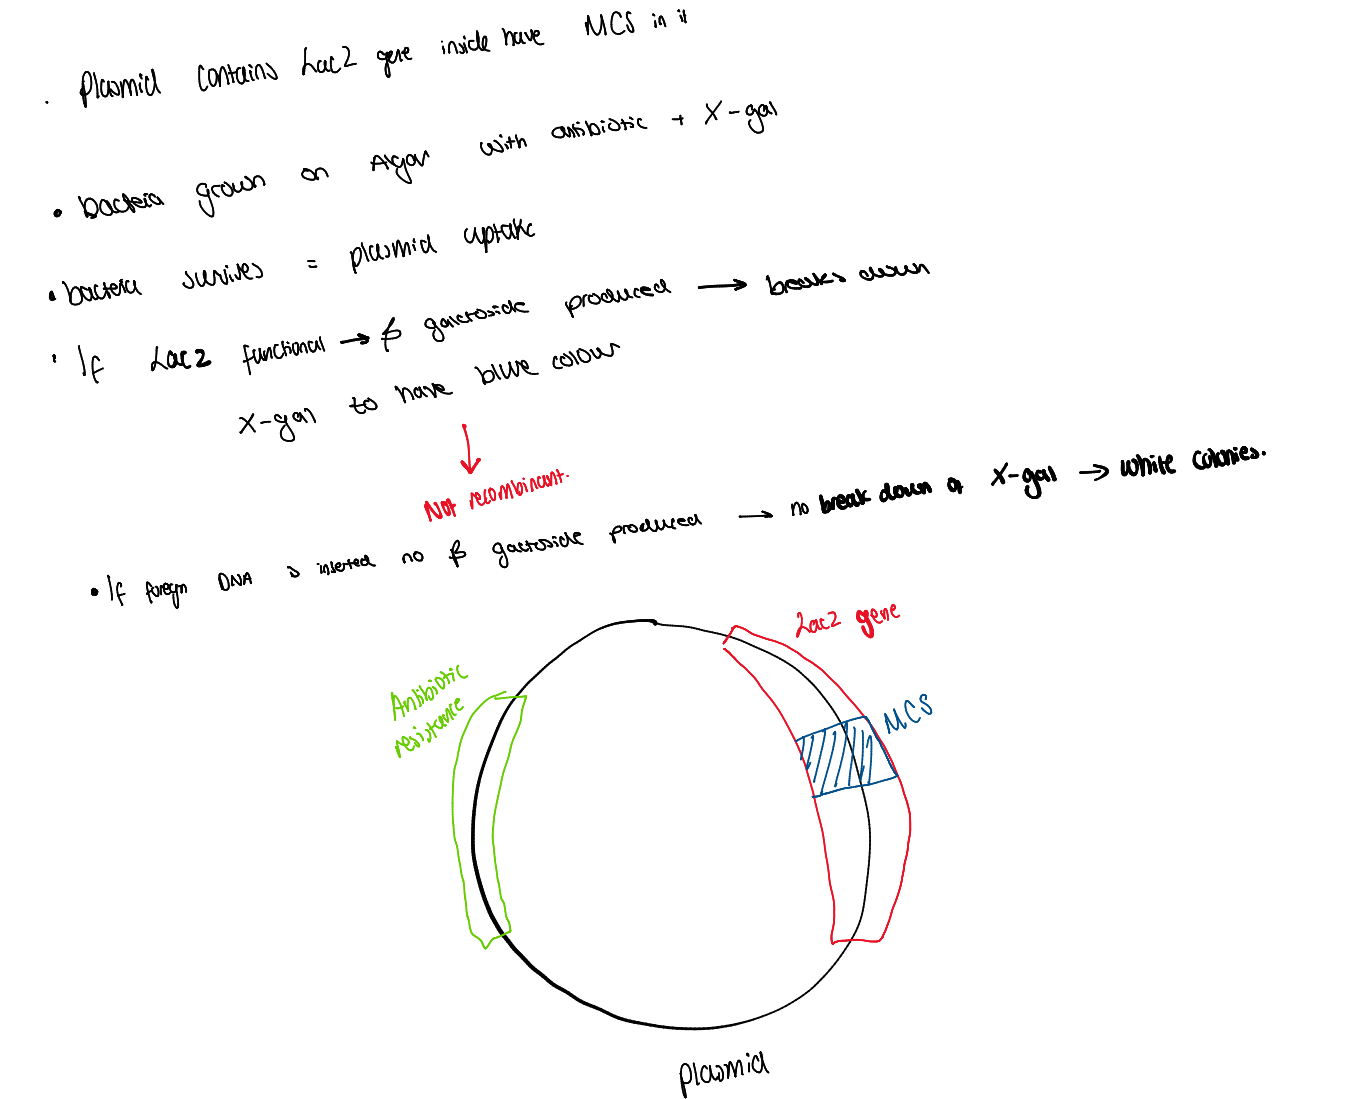 . Plasmid contains Lac2 gene inside have MCS in it
• bacteria grown on Algar with antibiotic + X-gal
• bacteria survives = plasmid uptake
• If Lac2 functional → β galactoside produced → breaks down
X-gal to have blue colour
Not recombinant.
• If foreign DNA is inserted no β galactoside produced → no break down of X-gal → white colonies.
Lac2 gene
Antibiotic
resistance
MCS
Plasmid